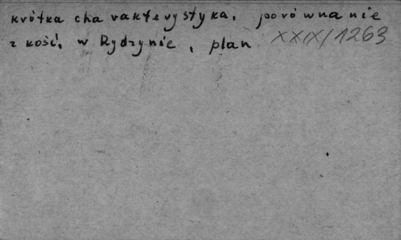 krótka charakterystyka, porównanie
z kość. w Rydzynie, plan XXIX/1263